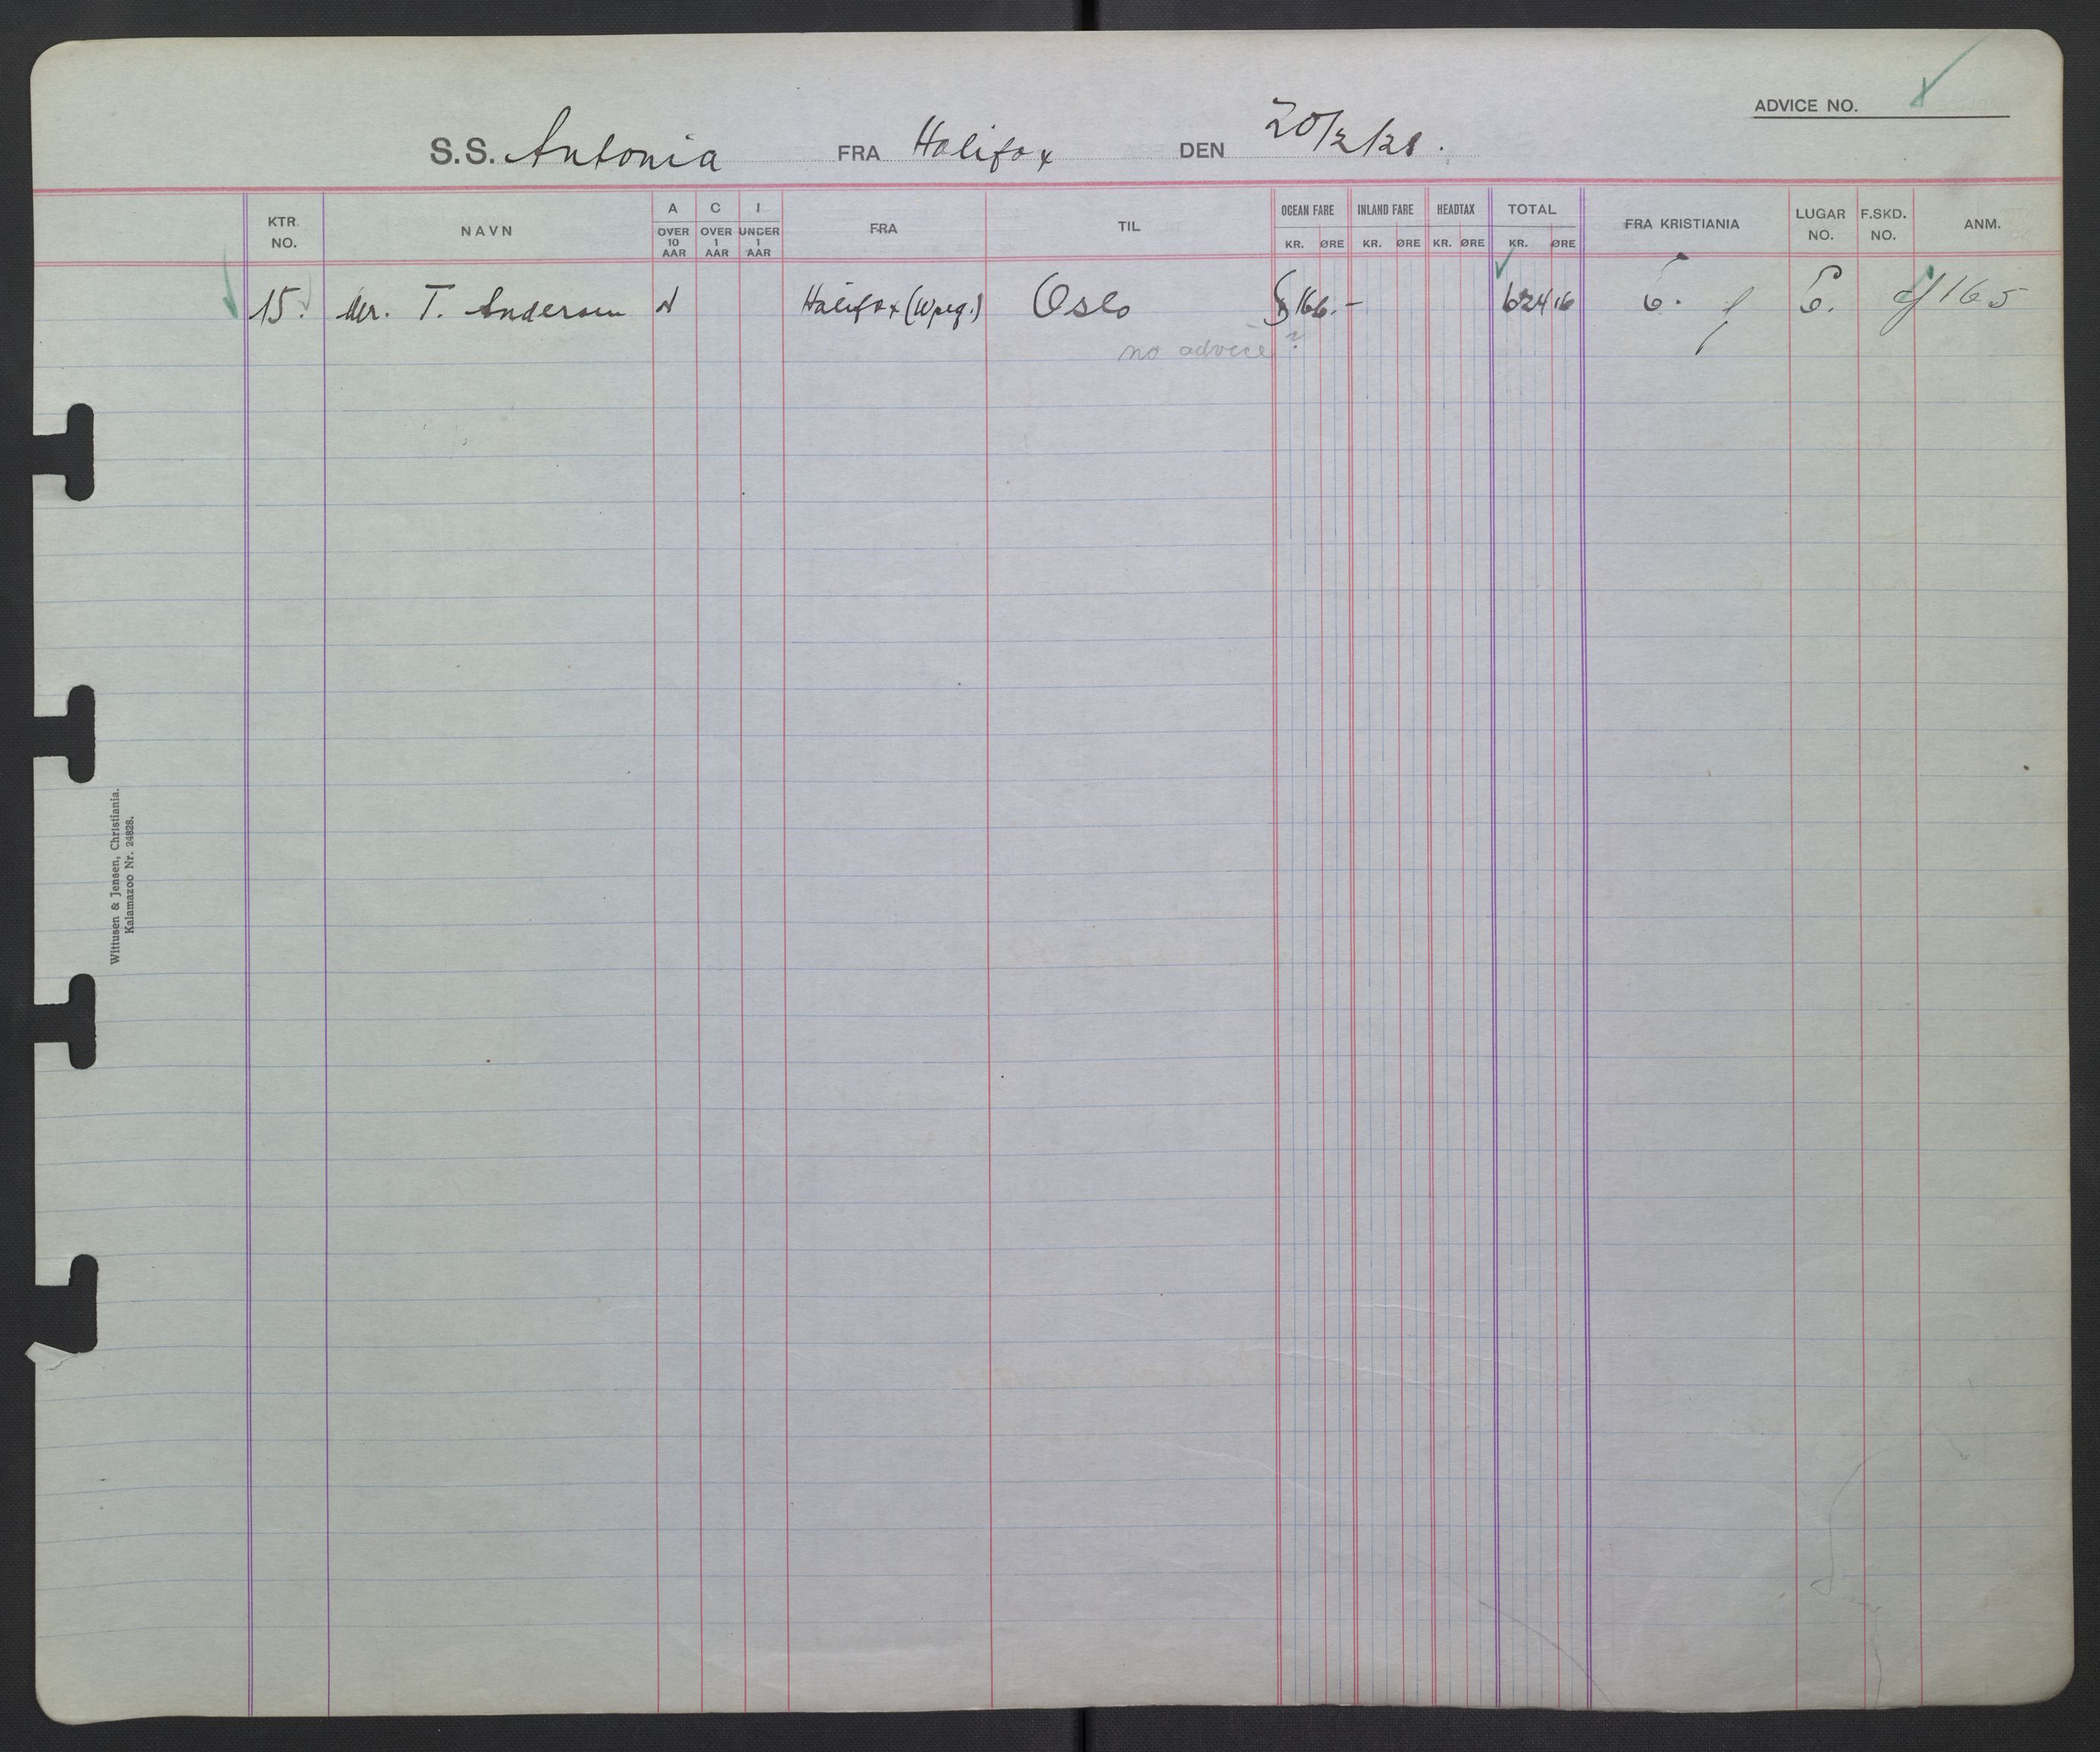 ADVICE NO.
S.S. Antonia FRA Halifax DEN 20/2/28.
KTR. NO. NAVN A OVER 10 AAR C OVER 1 AAR I UNDER 1 AAR FRA TIL OCEAN FARE KR. ØRE INLAND FARE KR. ØRE HEADTAX KR. ØRE TOTAL KR. ØRE FRA KRISTIANIA LUGAR NO. F.SKD. NO. ANM.
15. Mr. T. Andersen Halifax (Wpeg.) Oslo $166.- 624 16 6. 6. 165
no advice?
Wittusen & Jensen, Christiania.
Kalamazoo Nr. 24828.